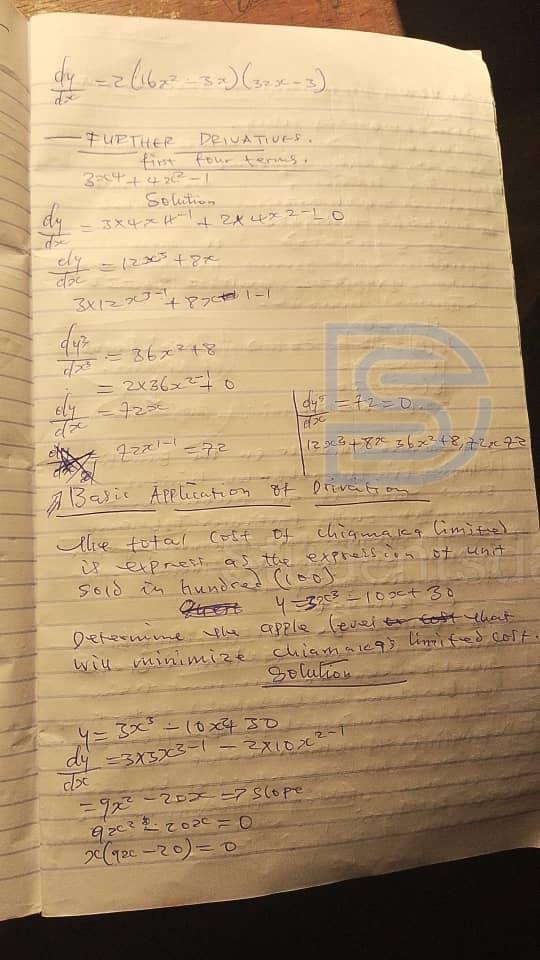 dy/dx = 2(16x² - 3x)(32x - 3)
— FURTHER DRIVATIVES.
first four terms.
3x4 + 4x² - 1
Solution
dy/dx = 3x4x4-1 + 2x4x2-1 - 0
dy/dx = 12x³ + 8x
3x12x3-1 + 8x 1-1
dy³/dx³ = 36x² + 8
= 2x36x2-1 + 0
dy/dx = 72x
72x1-1 = 72
dy/dx = 72 = 0
12x³ + 8x 36x² + 8, 72x 72
Basic Application of Drivation
The total cost of chiamaka limited
is express as the expression of unit
sold in hundred (100)
y = 3x³ - 10x + 30
Determine the apple level that
will minimize chiamaka's limited cost.
Solution
y = 3x³ - 10x4 30
dy/dx = 3x3x3-1 - 2x10x2-1
= 9x² - 20x → slope
9x² - 20x = 0
x(9x - 20) = 0